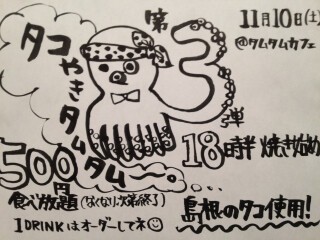 タコやきタムタム〜。
第3弾
11月10日(土)
@タムタムカフェ
18時半 焼き始め
500円
食べ放題(なくなり次第終了)
島根のタコ使用!
1DRINKはオーダーしてネ☺